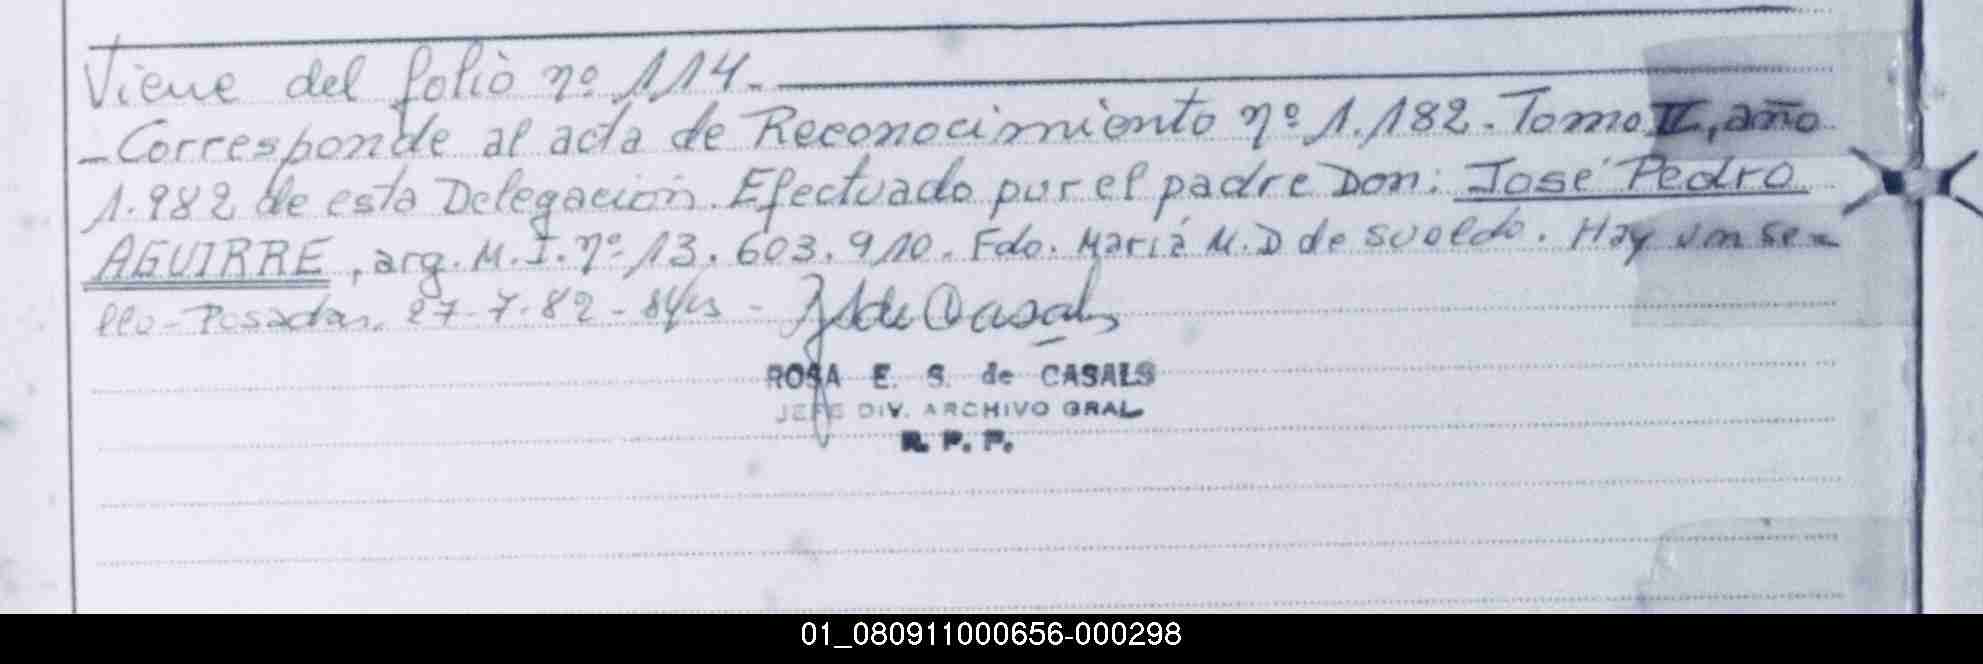 Viene del folio nº 114.-
-Corresponde al acta de Reconocimiento nº 1.182. Tomo II, año
1.982 de esta Delegación. Efectuado por el padre Don: José Pedro
AGUIRRE, arg. M.I. nº 13.603.910. Fdo. Maria M.D de Sueldo. Hay un se-
llo-Posadas. 27-7-82 -
ROSA E. S. de CASALS
JEFE DIV. ARCHIVO GRAL
R. P. P.
01_080911000656-000298